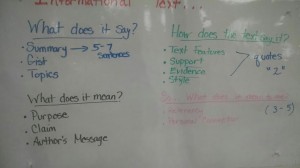 Informational Text...
What does it say?
Summary → 5-7 sentences
Gist
Topics
What does it mean?
Purpose
Claim
Author's Message
How does the text say it?
Text features
Support
Evidence
Style
quotes
"2"
(3-5)